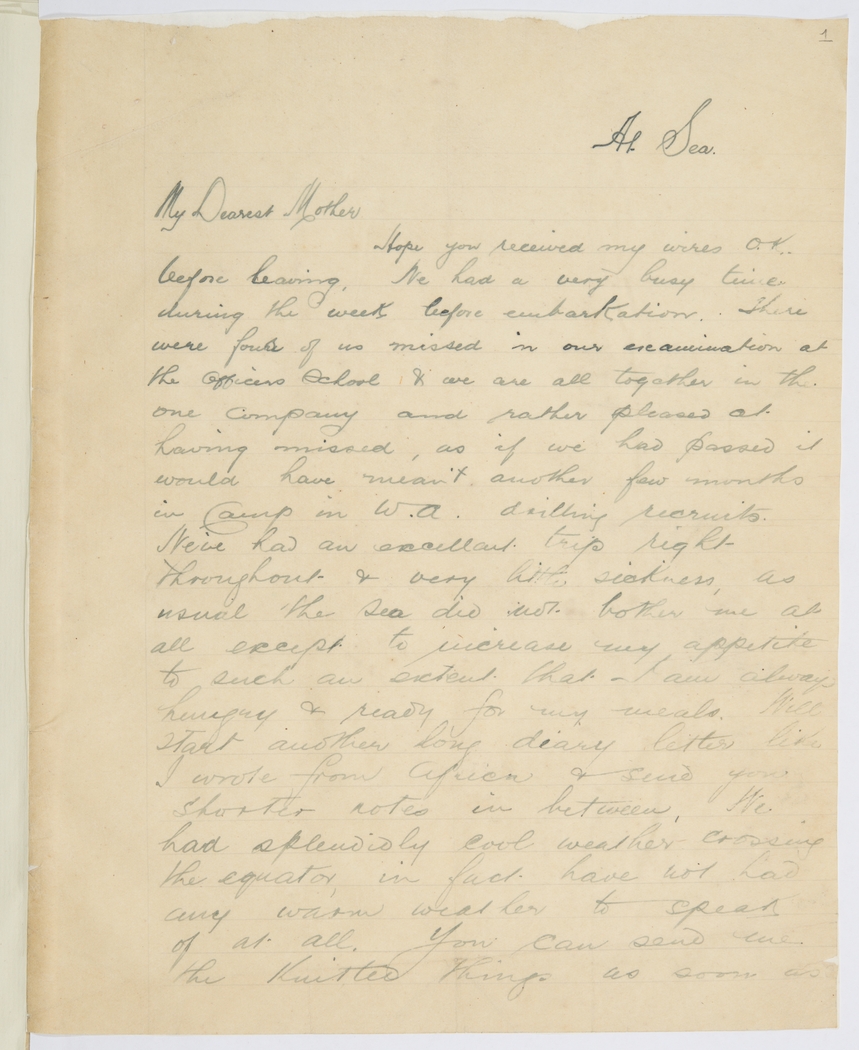 1
At Sea.
My Dearest Mother
Hope you received my wires O.K..
before leaving. We had a very busy time
during the week before embarkation. There
were four of us missed in our examination at
the Officers School & we are all together in the
one company and rather pleased at
having missed, as if we had passed it
would have meant another few months
in Camp in W.A. drilling recruits.
We've had an excellant trip right
throughout & very little sickness, as
usual the sea did not bother me at
all except to increase my appetite
to such an extent that I am always
hungry & ready for my meals. Will
start another long diary letter like
I wrote from Africa & send you
shorter notes in between, We
had splendidly cool weather crossing
the equator, in fact have not had
any warm weather to speak
of at all. You can send me
the Knitted things as soon as